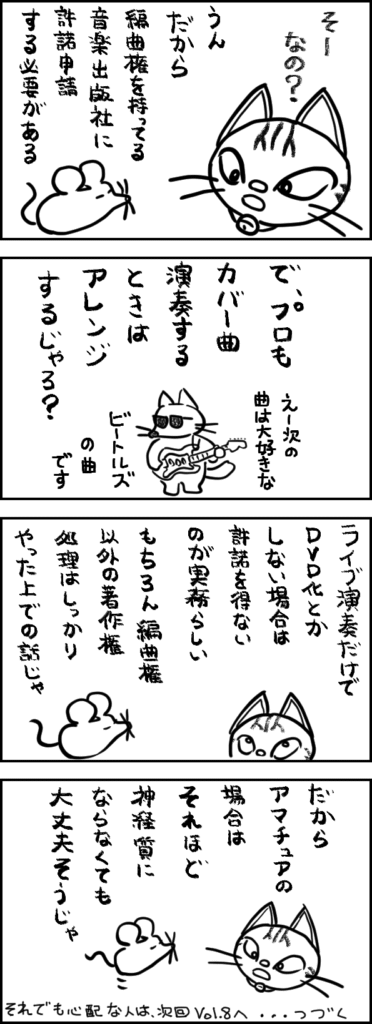 そー
なの？
うん
だから
編曲権を持ってる
音楽出版社に
許諾申請
する必要がある
で、プロも
カバー曲
演奏する
ときは
アレンジ
するじゃろ？
えー次の
曲は大好きな
ビートルズ
の曲
です
ライブ演奏だけで
DVD化とか
しない場合は
許諾を得ない
のが実務らしい
もちろん編曲権
以外の著作権
処理はしっかり
やった上での話じゃ
だから
アマチュアの
場合は
それほど
神経質に
ならなくても
大丈夫そうじゃ
それでも心配な人は、次回Vol.8へ ...つづく